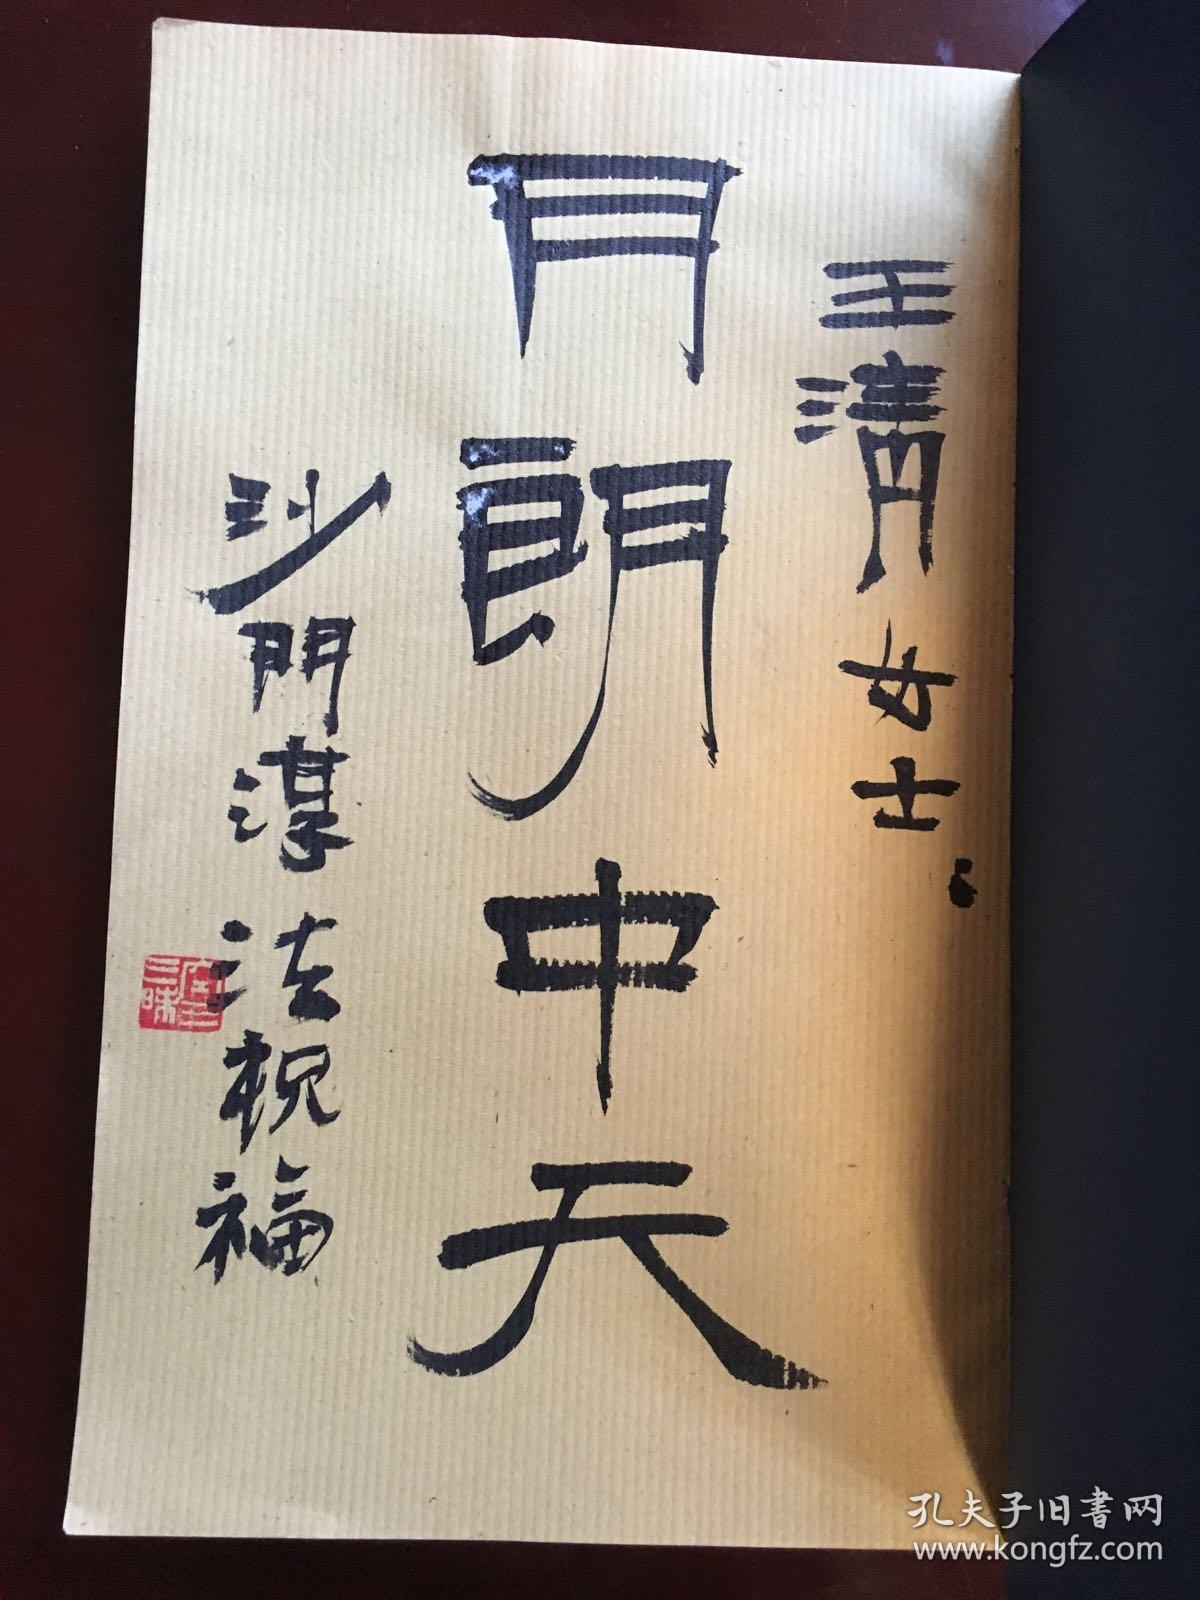 王清女士:
月朗中天
沙門谋法祝福
孔夫子旧書网
www.kongfz.com